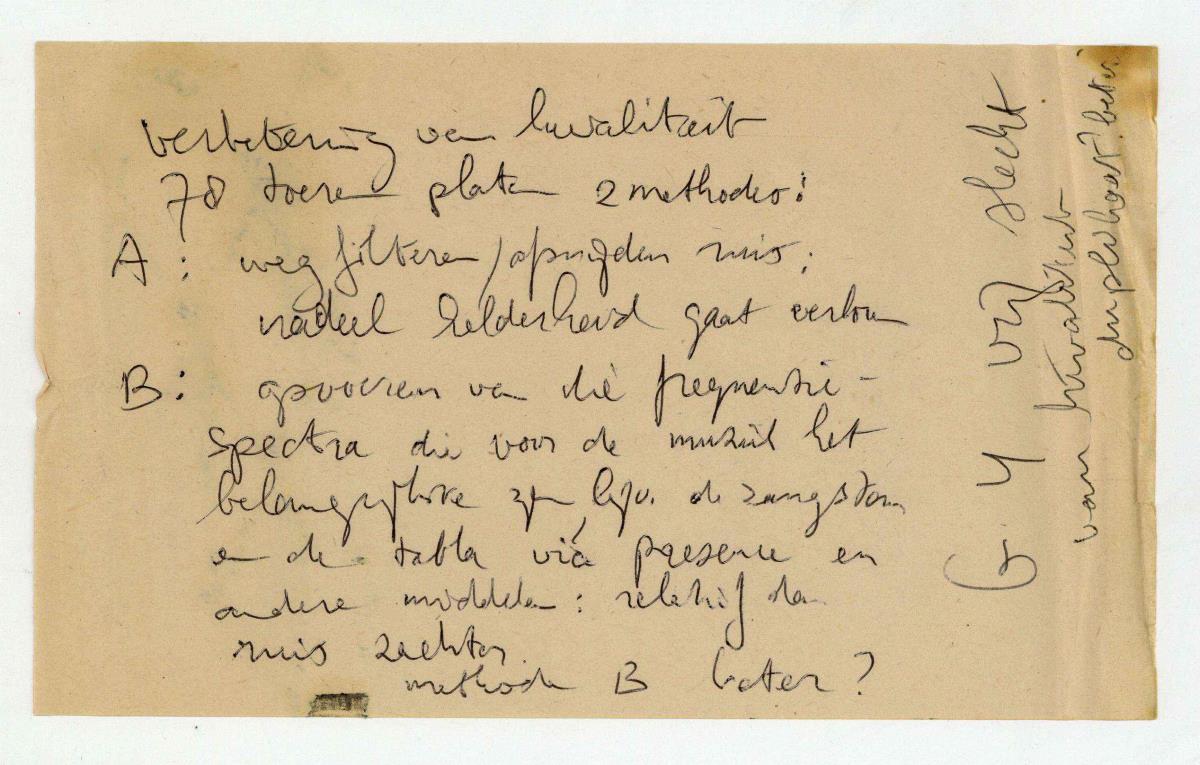 verbetering van kwaliteit
78 toeren platen 2 methodes:
A: weg filteren / afsnijden ruis;
nadeel helderheid gaat verloren
B: opvoeren van die frequentie-
spectra die voor de muziek het
belangrijkste zijn bijv. de zangstem
en de tabla via presence en
andere middelen: relatief dan
ruis zachter.
methode B beter?
vrij slecht
van kwaliteit
beter